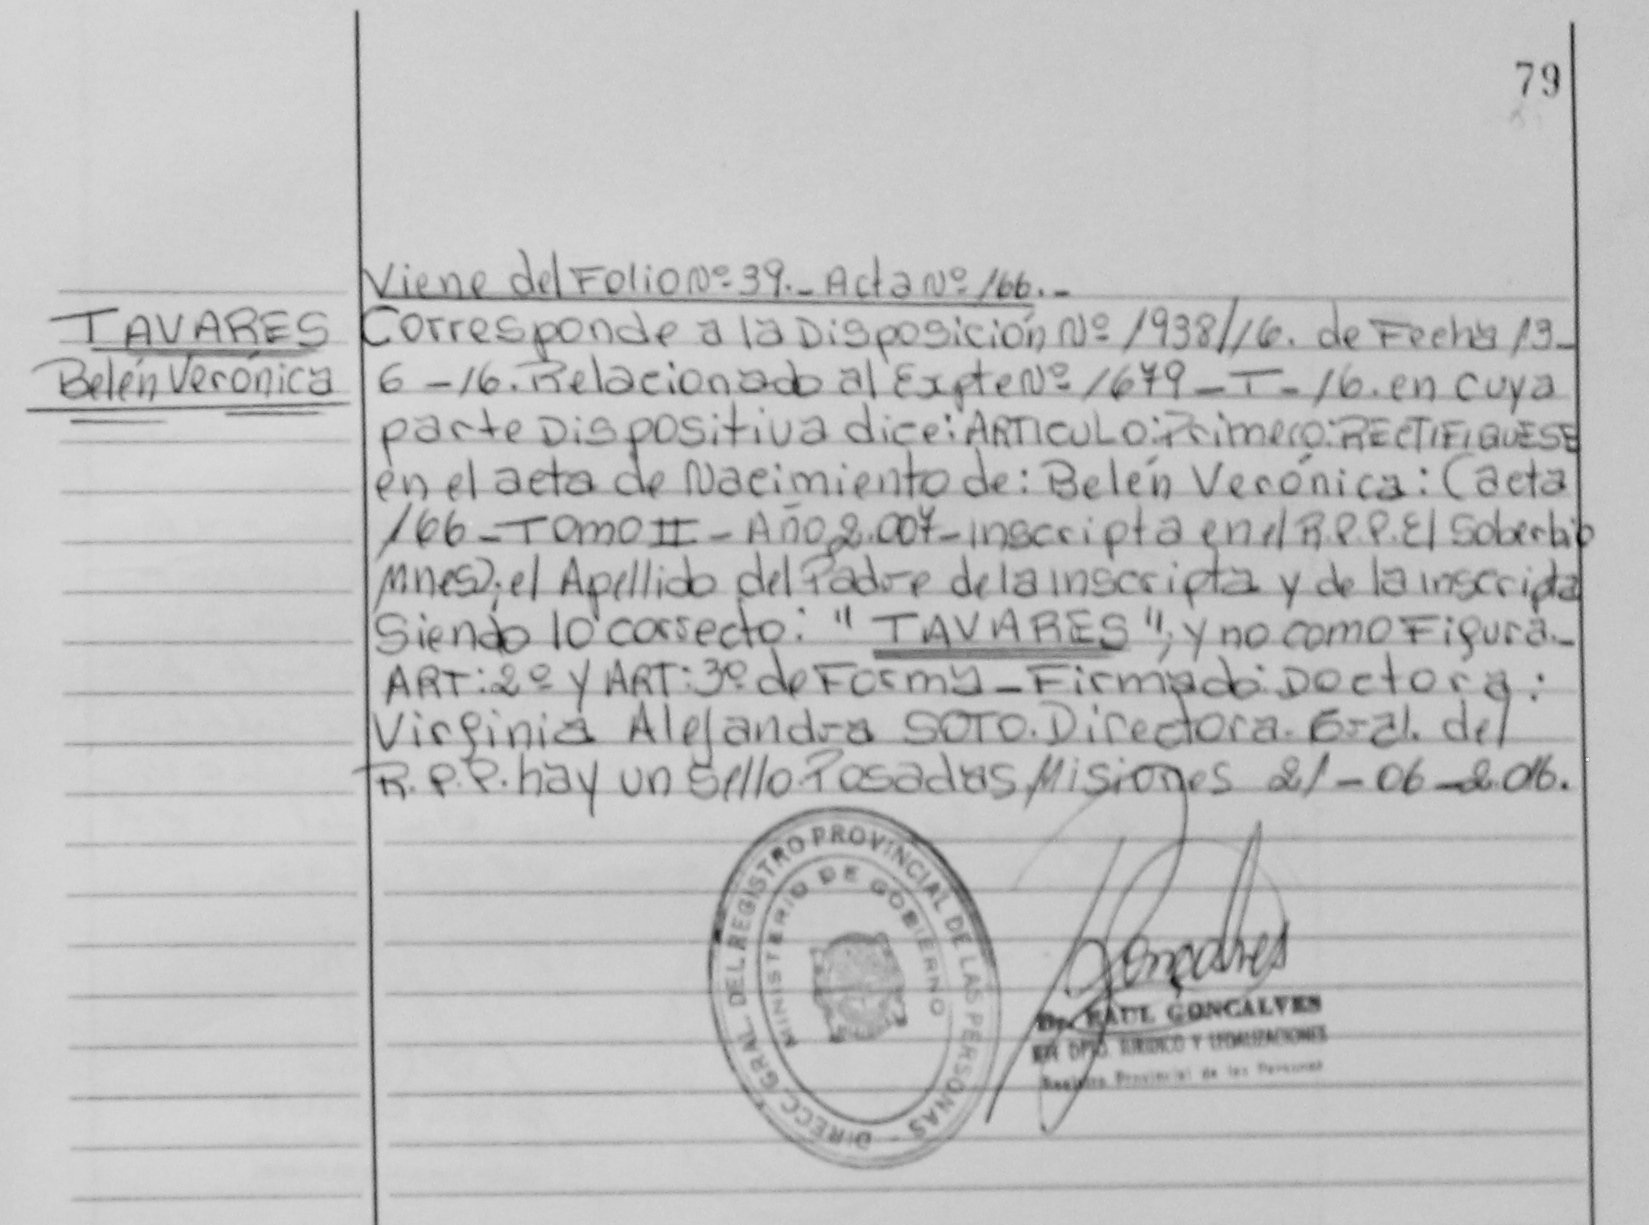 79
Viene del Folio Nº 39.- Acta Nº 166.-
TAVARES
Belén Verónica
Corresponde a la Disposición Nº 1938/16. de Fecha 13-
6-16. Relacionado al Expte Nº 1679-T-16. en cuya
parte Dispositiva dice: ARTICULO: Primero: RECTIFIQUESE
en el acta de Nacimiento de: Belén Verónica: (acta
166-TOMO II-Año 2.007-inscripta en el R.P.P. El Soberbio
Mnes); el Apellido del Padre de la inscripta y de la inscripta
Siendo lo correcto: "TAVARES", y no como Figura.-
ART: 2º y ART: 3º de Forma-Firmado: Doctora:
Virginia Alejandra SOTO. Directora. Gral. del
R.P.P. hay un Sello. Posadas, Misiones 21-06-2.016.
DIRECC. GRAL. DEL REGISTRO PROVINCIAL DE LAS PERSONAS -
MINISTERIO DE GOBIERNO
Goncalves
Dr. RAUL GONCALVES
DPTO. JURIDICO Y LEGALIZACIONES
Registro Provincial de las Personas